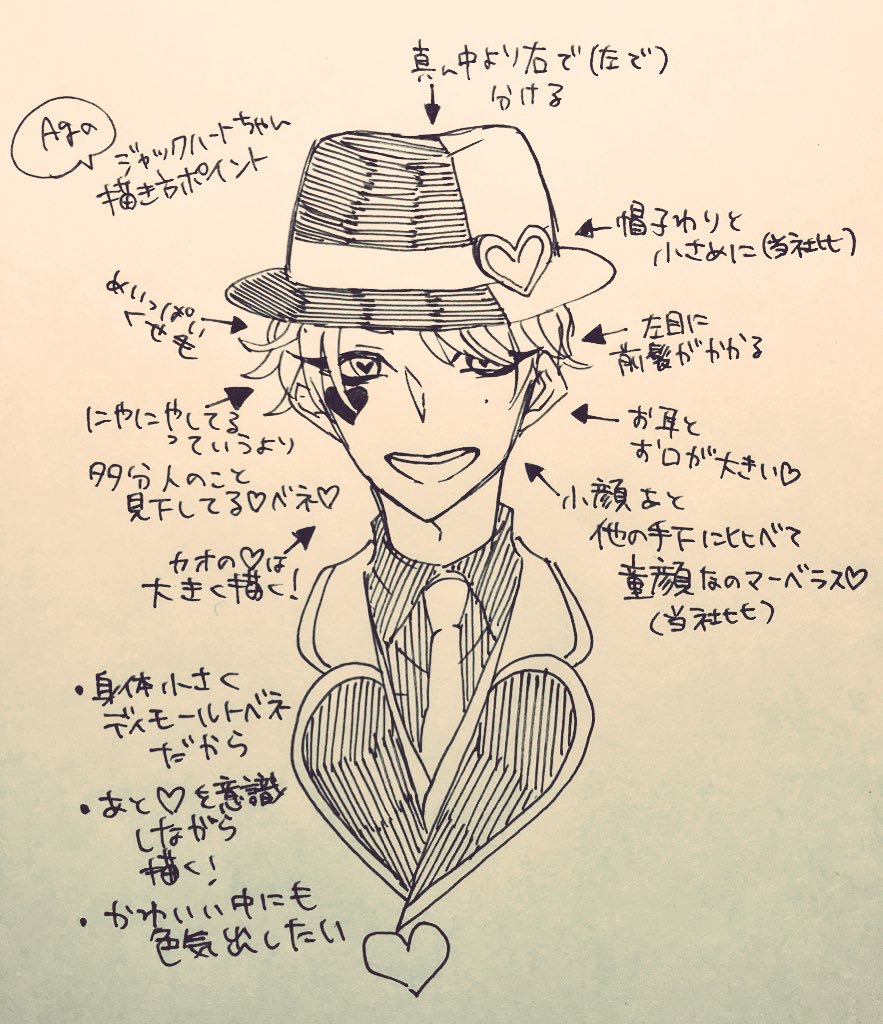 真ん中より右で(左で)
分ける
Aga
ジャックハートちゃん
描き方ポイント
帽子わりと
小さめに(当社比)
めいっぱい
くせ毛
左目に
前髪がかかる
にやにやしてる
っていうより
多分人のこと
見下してる♡ベネ♡
お耳と
お口が大きい♡
カオの♡は
大きく描く!
小顔あと
他の手下に比べて
童顔なのマーベラス♡
(当社比)
・身体小さく
ディモールトベネ
だから
・あと♡を意識
しながら
描く!
・かわいい中にも
色気出したい